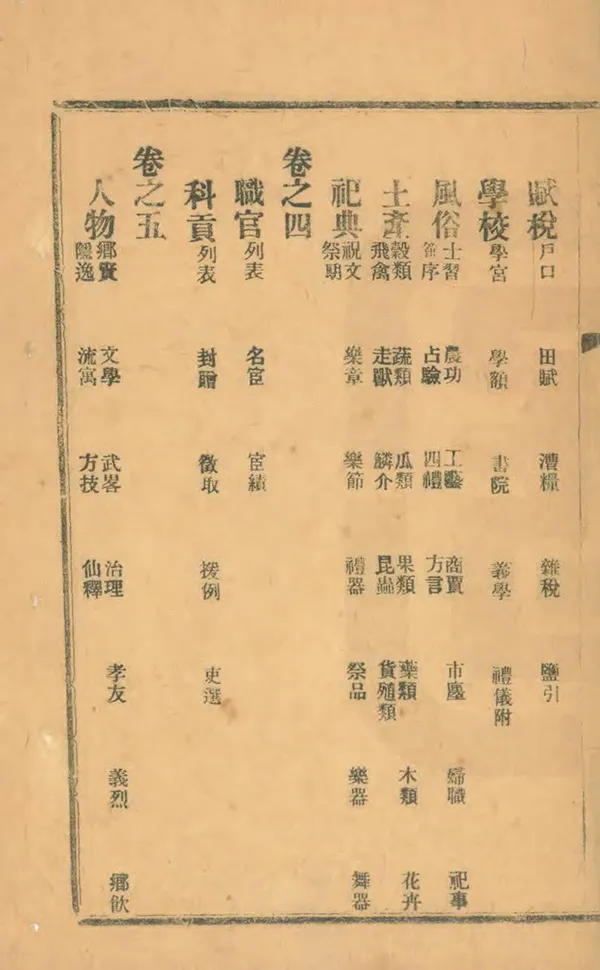 賦稅 戶口 田賦 漕糧 雜稅 鹽引
學校 學宮 學額 書院 義學 禮儀附
風俗 士習 農功 工藝 商賈 市廛 婦職 祀事
序 占驗 四禮 方言
土產 穀類 蔬類 瓜類 果類 藥類 木類 花卉
飛禽 走獸 鱗介 昆蟲 貨殖類
祀典 祝文 樂章 樂節 禮器 祭品 樂器 舞器
祭期
卷之四
職官 列表 名宦 宦績
科貢 列表 封贈 徵取 援例 吏選
卷之五
人物 鄉賢 文學 武畧 治理 孝友 義烈 鄉飲
隱逸 流寓 方技 仙釋